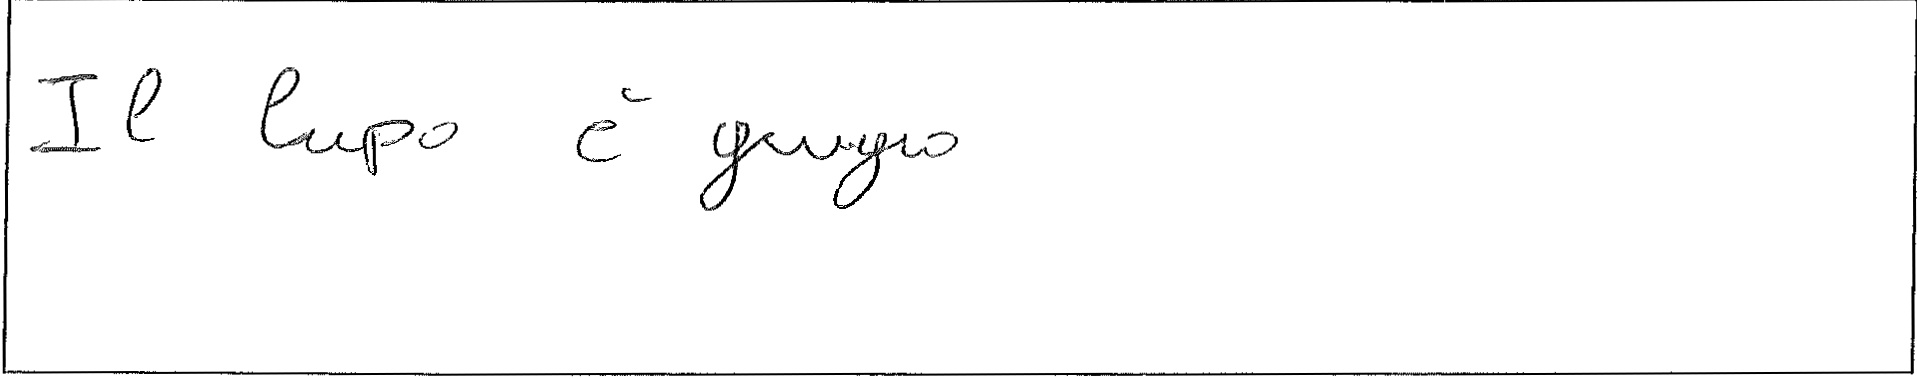 Il lupo è grugro